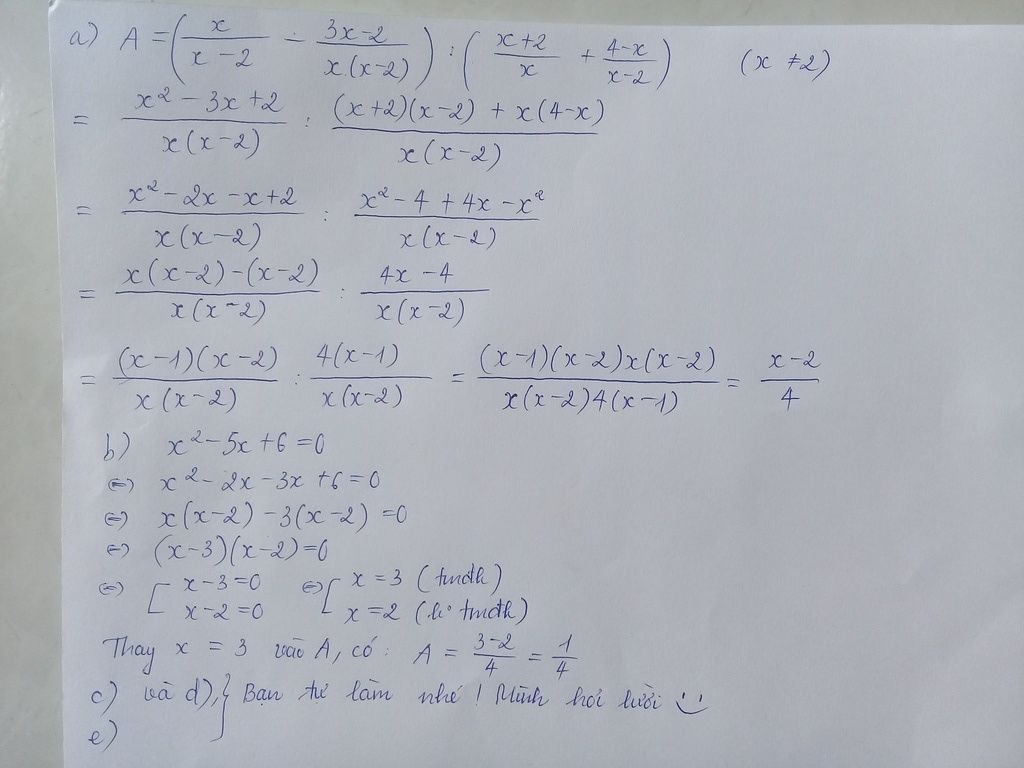 a) A = (x/(x-2) - (3x-2)/(x.(x-2))) : ((x+2)/x + (4-x)/(x-2)) (x ≠ 2)
= (x² - 3x + 2)/(x(x-2)) : ((x+2)(x-2) + x(4-x))/(x(x-2))
= (x² - 2x - x + 2)/(x(x-2)) : (x² - 4 + 4x - x²)/(x(x-2))
= (x(x-2) - (x-2))/(x(x-2)) : (4x - 4)/(x(x-2))
= ((x-1)(x-2))/(x(x-2)) : (4(x-1))/(x(x-2)) = ((x-1)(x-2)x(x-2))/(x(x-2)4(x-1)) = (x-2)/4
b) x² - 5x + 6 = 0
⇔ x² - 2x - 3x + 6 = 0
⇔ x(x-2) - 3(x-2) = 0
⇔ (x-3)(x-2) = 0
⇔ [ x-3=0 ⇔ [ x = 3 (tmđk)
x-2=0 x = 2 (k° tmđk)
Thay x = 3 vào A, có: A = (3-2)/4 = 1/4
c) và d), } Bạn tự làm nhé! Mình hơi lười :)
e)